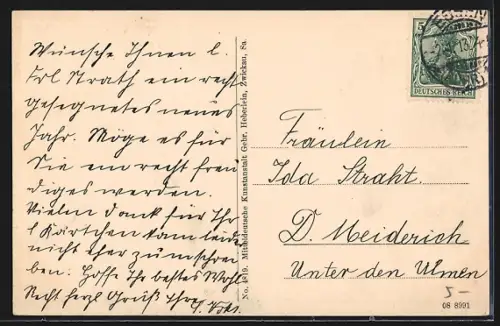 Wünsche Ihnen l.
Frl Strath ein recht
gesegnetes neues
Jahr. Möge es für
Sie ein recht freu
diges werden.
Vielen dank für Ihr
l Kärtchen kam leider
nicht eher zum schrei
ben. Hoffe Ihr bestes Wohl
Recht herzl Gruß Ihre
No. 4919. Mitteldeutsche Kunstanstalt Gebr. Heberlein, Zwickau, Sa.
5
DEUTSCHES REICH
ESSEN
Fräulein
Ida Straht.
D. Meiderich
Unter den Ulmen
5-
08 8991